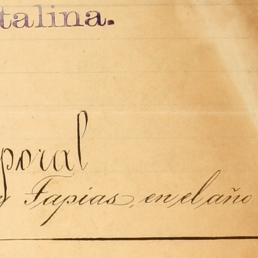 talina.
poral
y Tapias, en el año